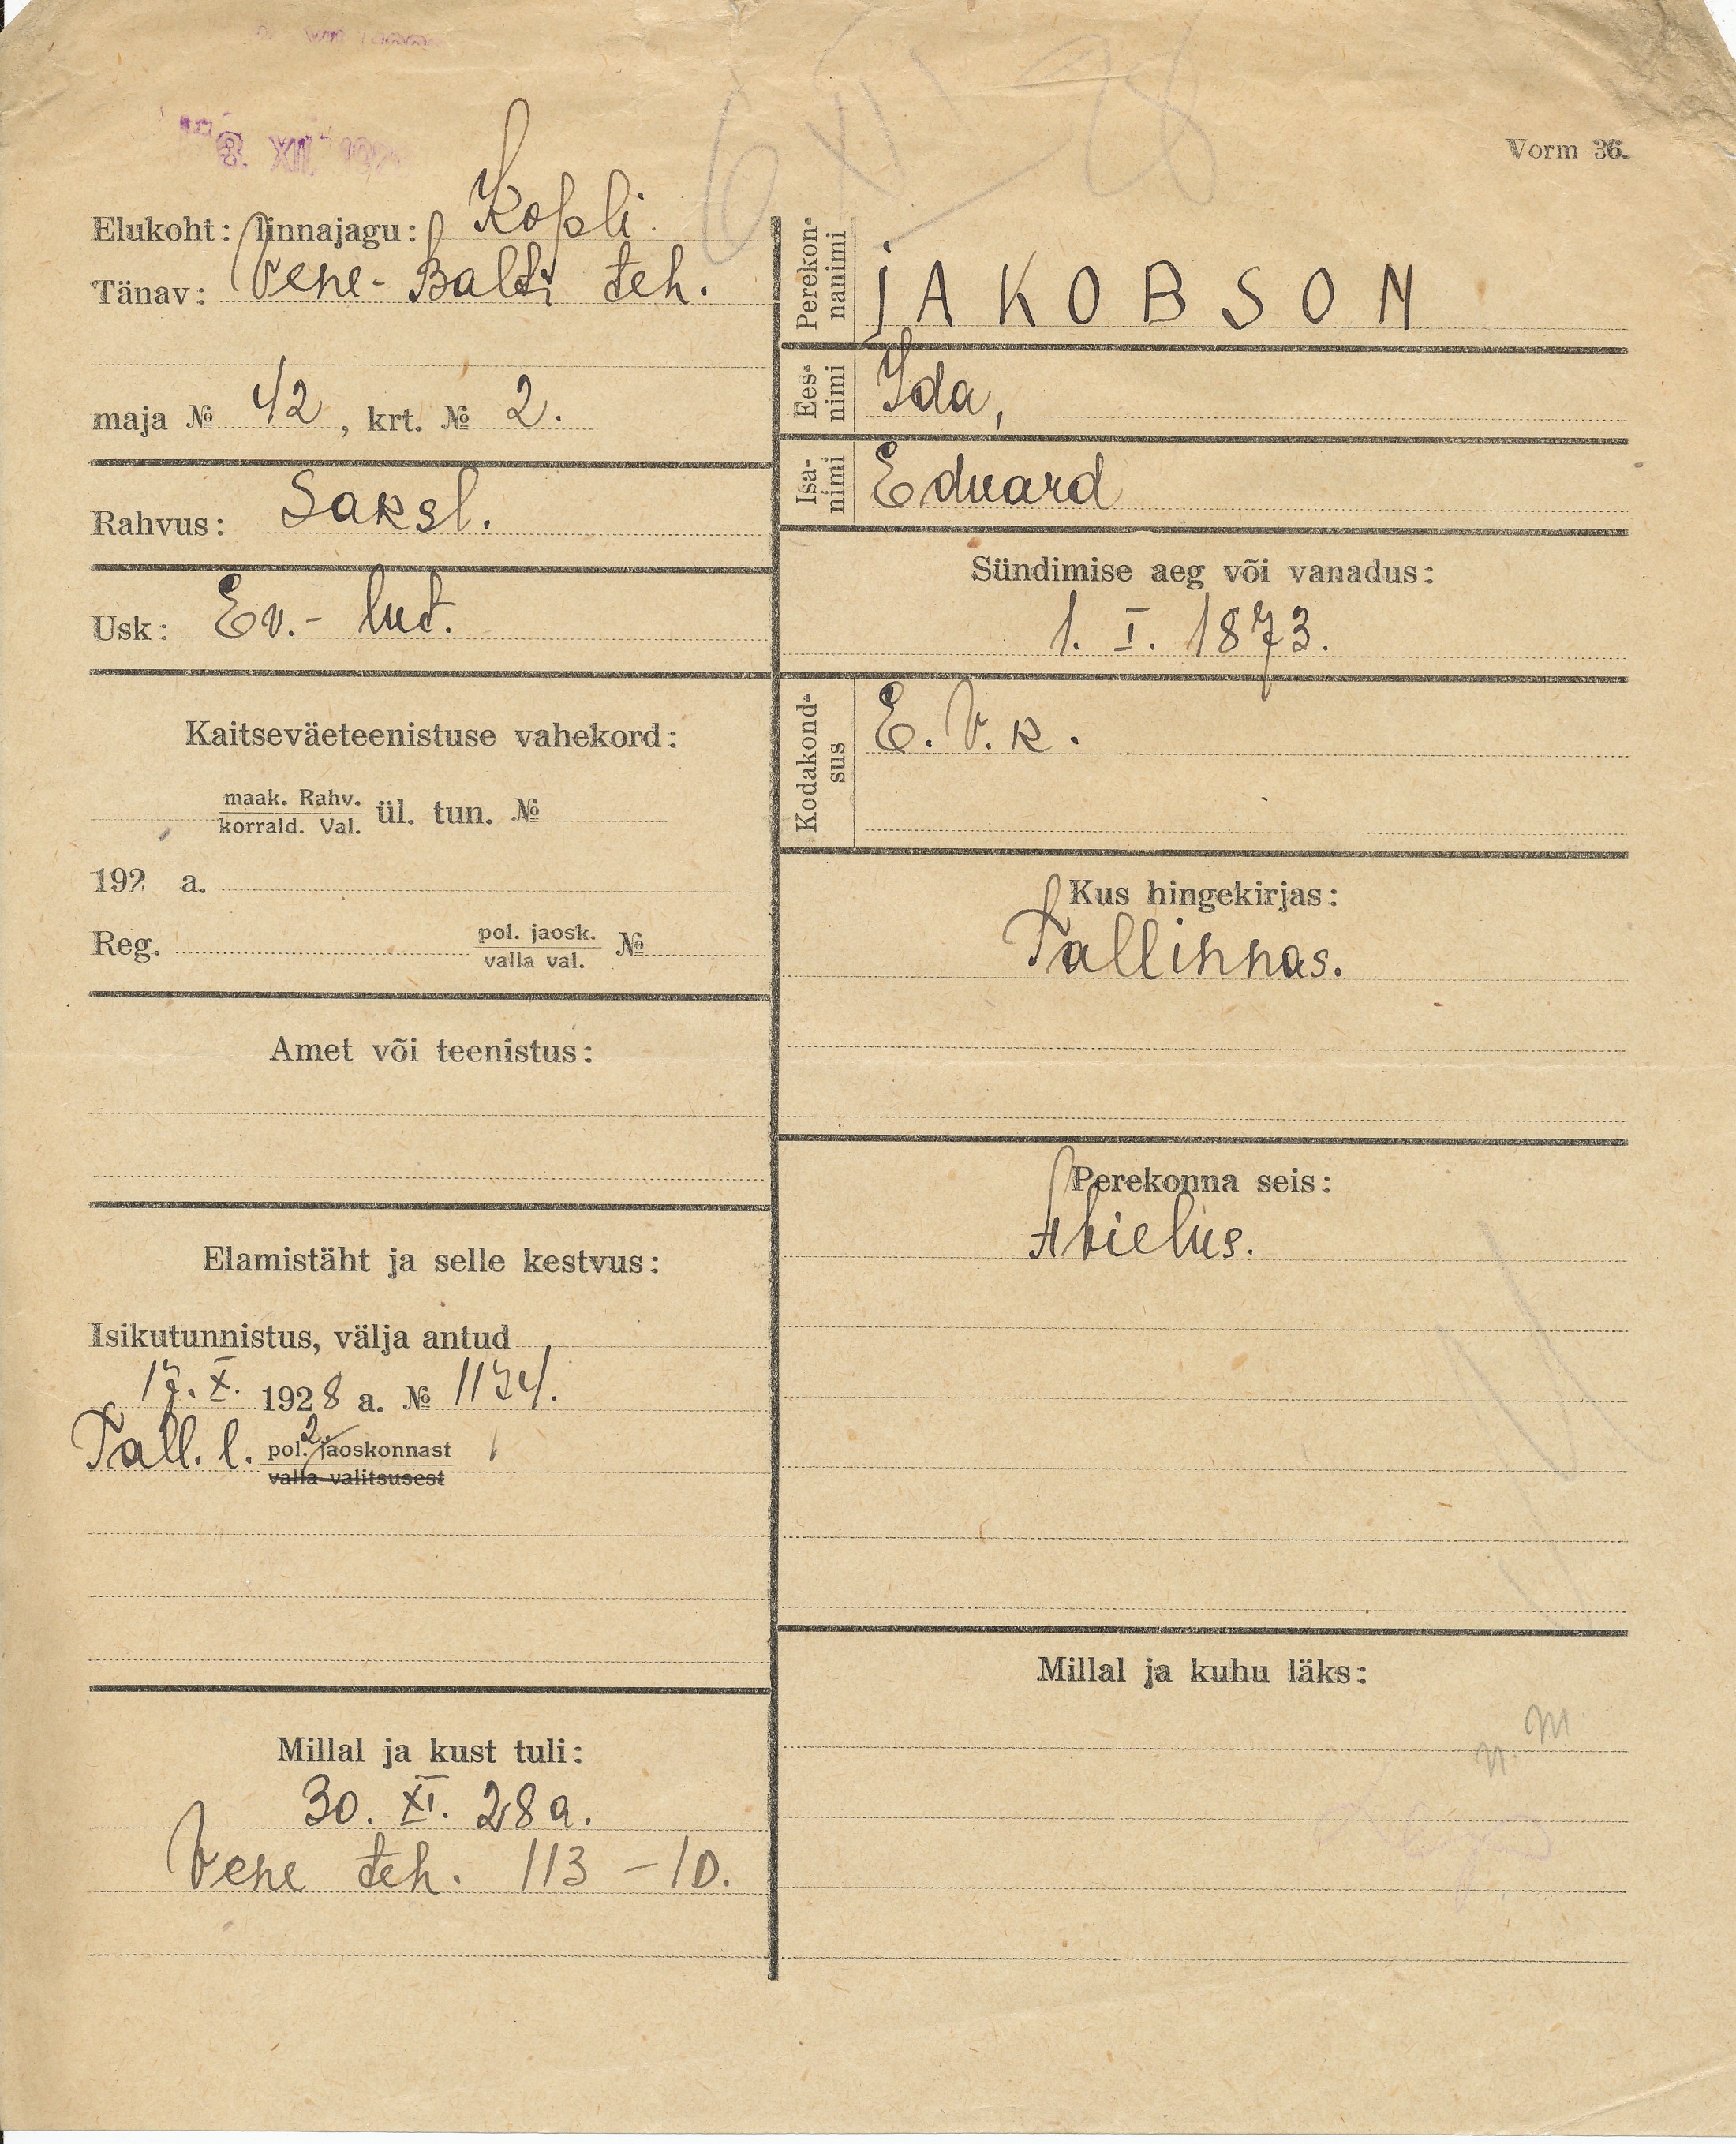 8. XII 192
6 XII 28
Vorm 36.
Elukoht: linnajagu: Kopli.
Tänav: Vene-Balti teh.
maja № 42, krt. № 2.
Rahvus: Saksl.
Usk: Ev.- lut.
Kaitseväeteenistuse vahekord:
maak. Rahv.
korrald. Val. ül. tun. №
192 a.
Reg. pol. jaosk. №
valla val.
Amet või teenistus:
Elamistäht ja selle kestvus:
Isikutunnistus, välja antud
17. X. 1928 a. № 1174.
Tall. l. pol. 2. jaoskonnast
valla valitsusest
Millal ja kust tuli:
30. XI. 28 a.
Vene teh. 113 - 10.
Perekon-
nanimi
JAKOBSON
Ees-
nimi
Ida,
Isa-
nimi
Eduard
Sündimise aeg või vanadus:
1. I. 1873.
Kodakond-
sus
E. V. k.
Kus hingekirjas:
Tallinnas.
Perekonna seis:
Abielus.
Millal ja kuhu läks: